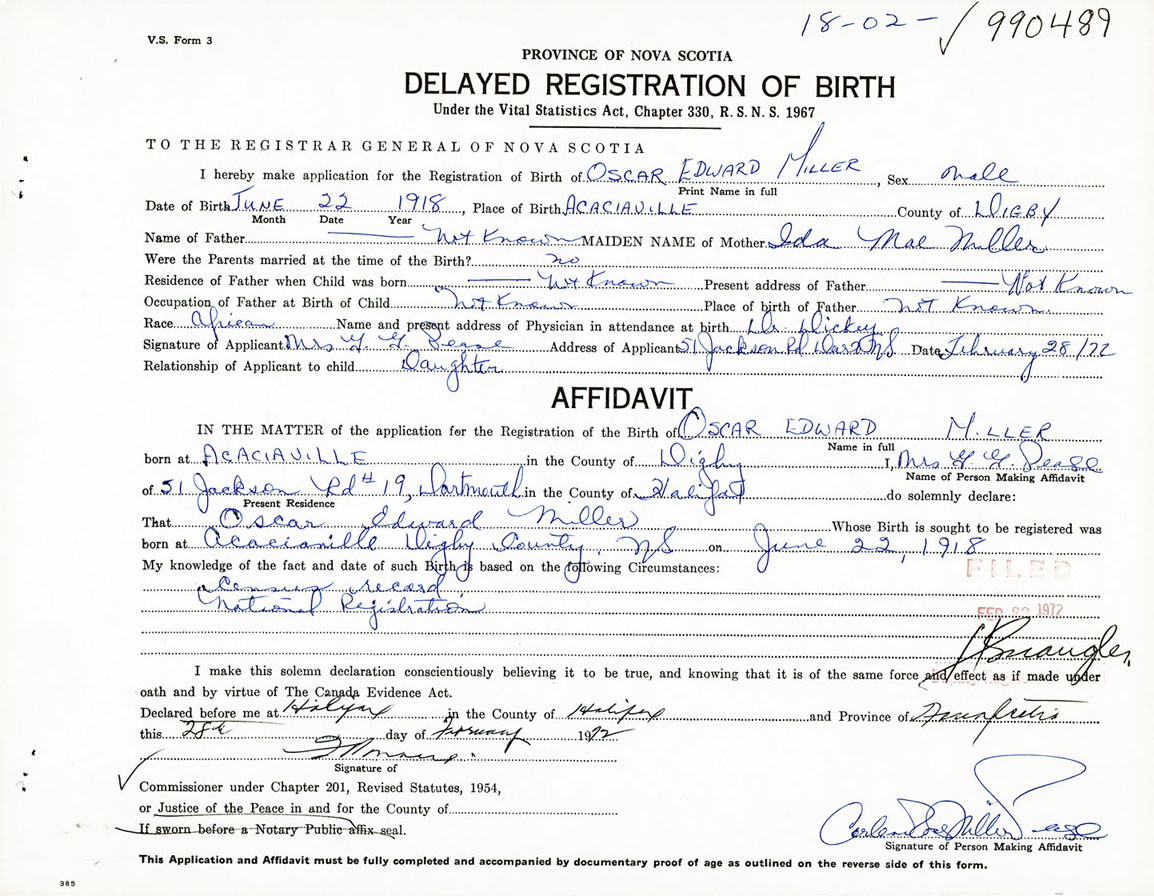 18-02- √ 990489
V.S. Form 3
PROVINCE OF NOVA SCOTIA
DELAYED REGISTRATION OF BIRTH
Under the Vital Statistics Act, Chapter 330, R.S.N.S. 1967
TO THE REGISTRAR GENERAL OF NOVA SCOTIA
I hereby make application for the Registration of Birth of OSCAR EDWARD MILLER, Sex male
Print Name in full
Date of Birth JUNE 22 1918, Place of Birth ACACIAVILLE County of DIGBY
Month Date Year
Name of Father Not Known MAIDEN NAME of Mother Ida Mae Miller
Were the Parents married at the time of the Birth? no
Residence of Father when Child was born Not Known Present address of Father Not Known
Occupation of Father at Birth of Child Not Known Place of birth of Father Not Known
Race African Name and present address of Physician in attendance at birth Dr. Dickey
Signature of Applicant Mrs G. G. Pease Address of Applicant 51 Jackson Rd Dart NS Date February 28/72
Relationship of Applicant to child Daughter
AFFIDAVIT
IN THE MATTER of the application for the Registration of the Birth of OSCAR EDWARD MILLER
Name in full
born at ACACIAVILLE in the County of Digby I, Mrs G. G. Pease
Name of Person Making Affidavit
of 51 Jackson Rd # 19, Dartmouth in the County of Halifax do solemnly declare:
Present Residence
That Oscar Edward Miller Whose Birth is sought to be registered was
born at Acaciaville Digby County, NS on June 22, 1918
My knowledge of the fact and date of such Birth is based on the following Circumstances:
FILED
Census record
National Registration
FEB 1972
I make this solemn declaration conscientiously believing it to be true, and knowing that it is of the same force and effect as if made under
oath and by virtue of The Canada Evidence Act.
Declared before me at Halifax in the County of Halifax and Province of Nova Scotia
this 28th day of February 1972
Signature of
Commissioner under Chapter 201, Revised Statutes, 1954,
or Justice of the Peace in and for the County of
If sworn before a Notary Public affix seal.
Miller Pease
Signature of Person Making Affidavit
This Application and Affidavit must be fully completed and accompanied by documentary proof of age as outlined on the reverse side of this form.
385